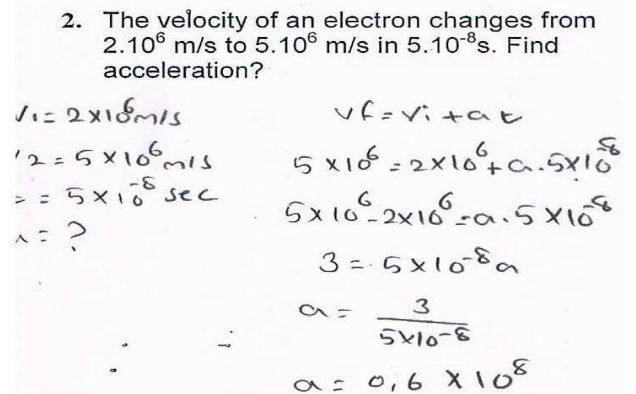 2. The velocity of an electron changes from
2.10⁶ m/s to 5.10⁶ m/s in 5.10⁻⁸s. Find
acceleration?
V1 = 2x10⁶ m/s
2 = 5 x 10⁶ m/s
= 5 x 10⁻⁸ sec
= ?
vf = vi + at
5 x10⁶ = 2x10⁶ + a.5x10⁻⁸
5x10⁶ - 2x10⁶ = a.5 x10⁻⁸
3 = 5x10⁻⁸ a
a = 3
5x10⁻⁸
a = 0,6 x 10⁸